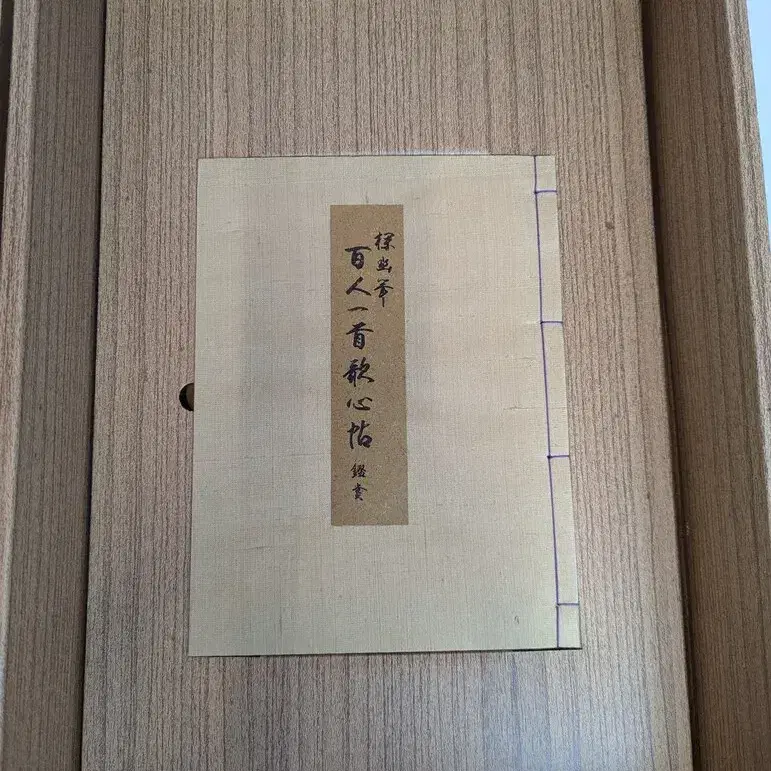 探幽筆
百人一首歌心帖 鑑賞